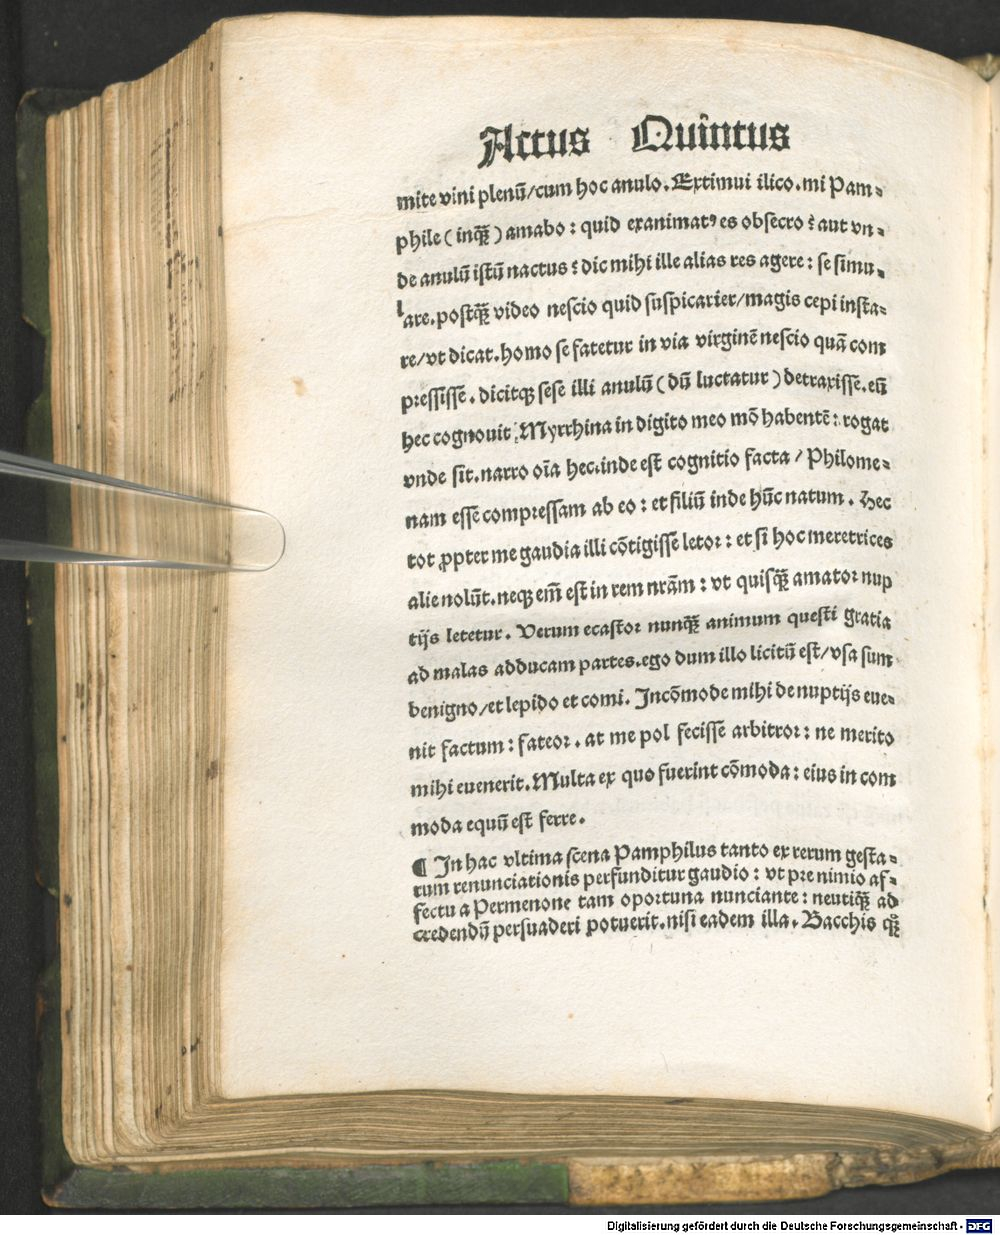 Actus Quintus
mite vini plenū/cum hoc anulo. Extimui ilico. mi Pam⸗
phile (inqꝫ̄) amabo: quid exanimatꝰ es obsecro? aut vn⸗
de anulū istū nactus? dic mihi ille alias res agere: se simu⸗
lare. postqꝫ̄ video nescio quid suspicarier/magis cepi insta⸗
re/vt dicat. homo se fatetur in via virginē nescio quā com
pressisse. dicitqꝫ sese illi anulū (dū luctatur) detraxisse. eū
hec cognouit Myrrhina in digito meo mō habentē: rogat
vnde sit. narro oīa hec. inde est cognitio facta / Philome⸗
nam esse compressam ab eo: et filiū inde hūc natum. Hec
tot ꝓpter me gaudia illi cōtigisse letor: et si hoc meretrices
alie nolūt. neqꝫ em̄ est in rem nrām: vt quisqꝫ̄ amator nup
tijs letetur. Verum ecastor nunqꝫ̄ animum questi gratia
ad malas adducam partes. ego dum illo licitū est/vsa sum
benigno/et lepido et comi. Incōmode mihi de nuptijs eue⸗
nit factum: fateor. at me pol fecisse arbitror: ne merito
mihi euenerit. Multa ex quo fuerint cōmoda: eius in com
moda equū est ferre.
¶ In hac vltima scena Pamphilus tanto ex rerum gesta⸗
rum renunciationis perfunditur gaudio: vt pre nimio af⸗
fectu a Permenone tam oportuna nunciante: neutiqꝫ̄ ad
credendū persuaderi potuerit. nisi eadem illa. Bacchis qꝫ̊
Digitalisierung gefördert durch die Deutsche Forschungsgemeinschaft - DFG